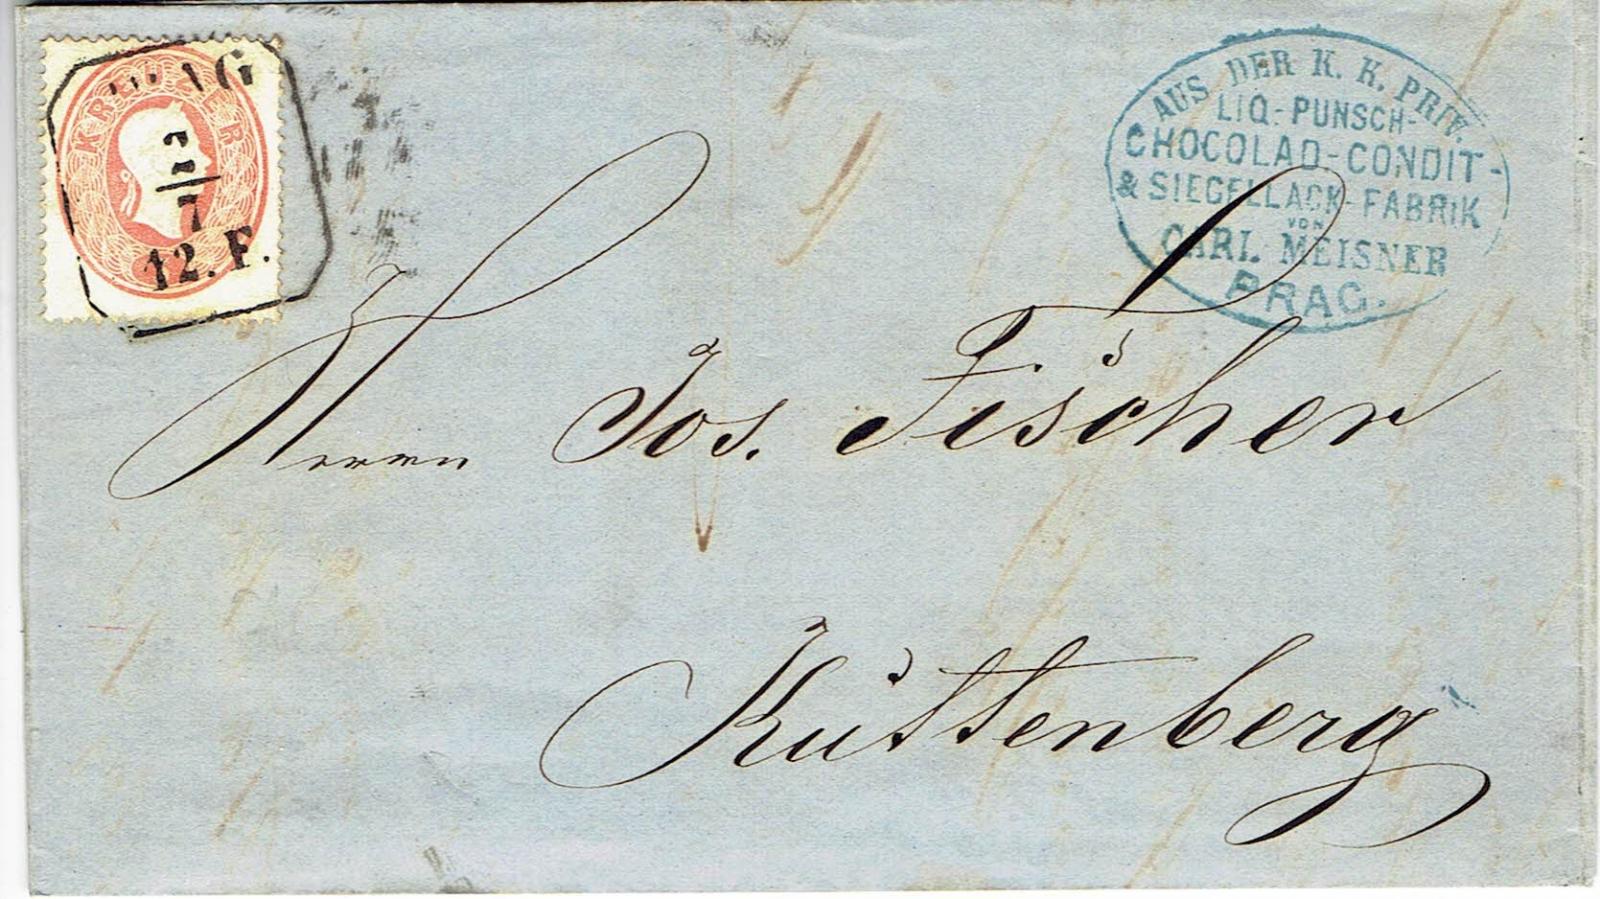 PRAG
2
7
12. F.
KREUZER
AUS DER K. K. PRIV.
LIQ-PUNSCH-
CHOCOLAD-CONDIT-
& SIEGELLACK-FABRIK
VON
CARL MEISNER
PRAG.
Herrn Jos. Fischer
Kuttenberg